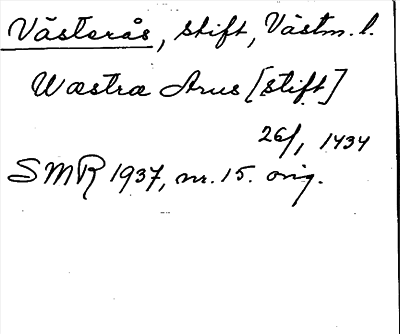 Västerås, stift, Västm. l.
Wæstræ Arus [stift]
26/1 1434
SMR 1937, nr. 15. orig.